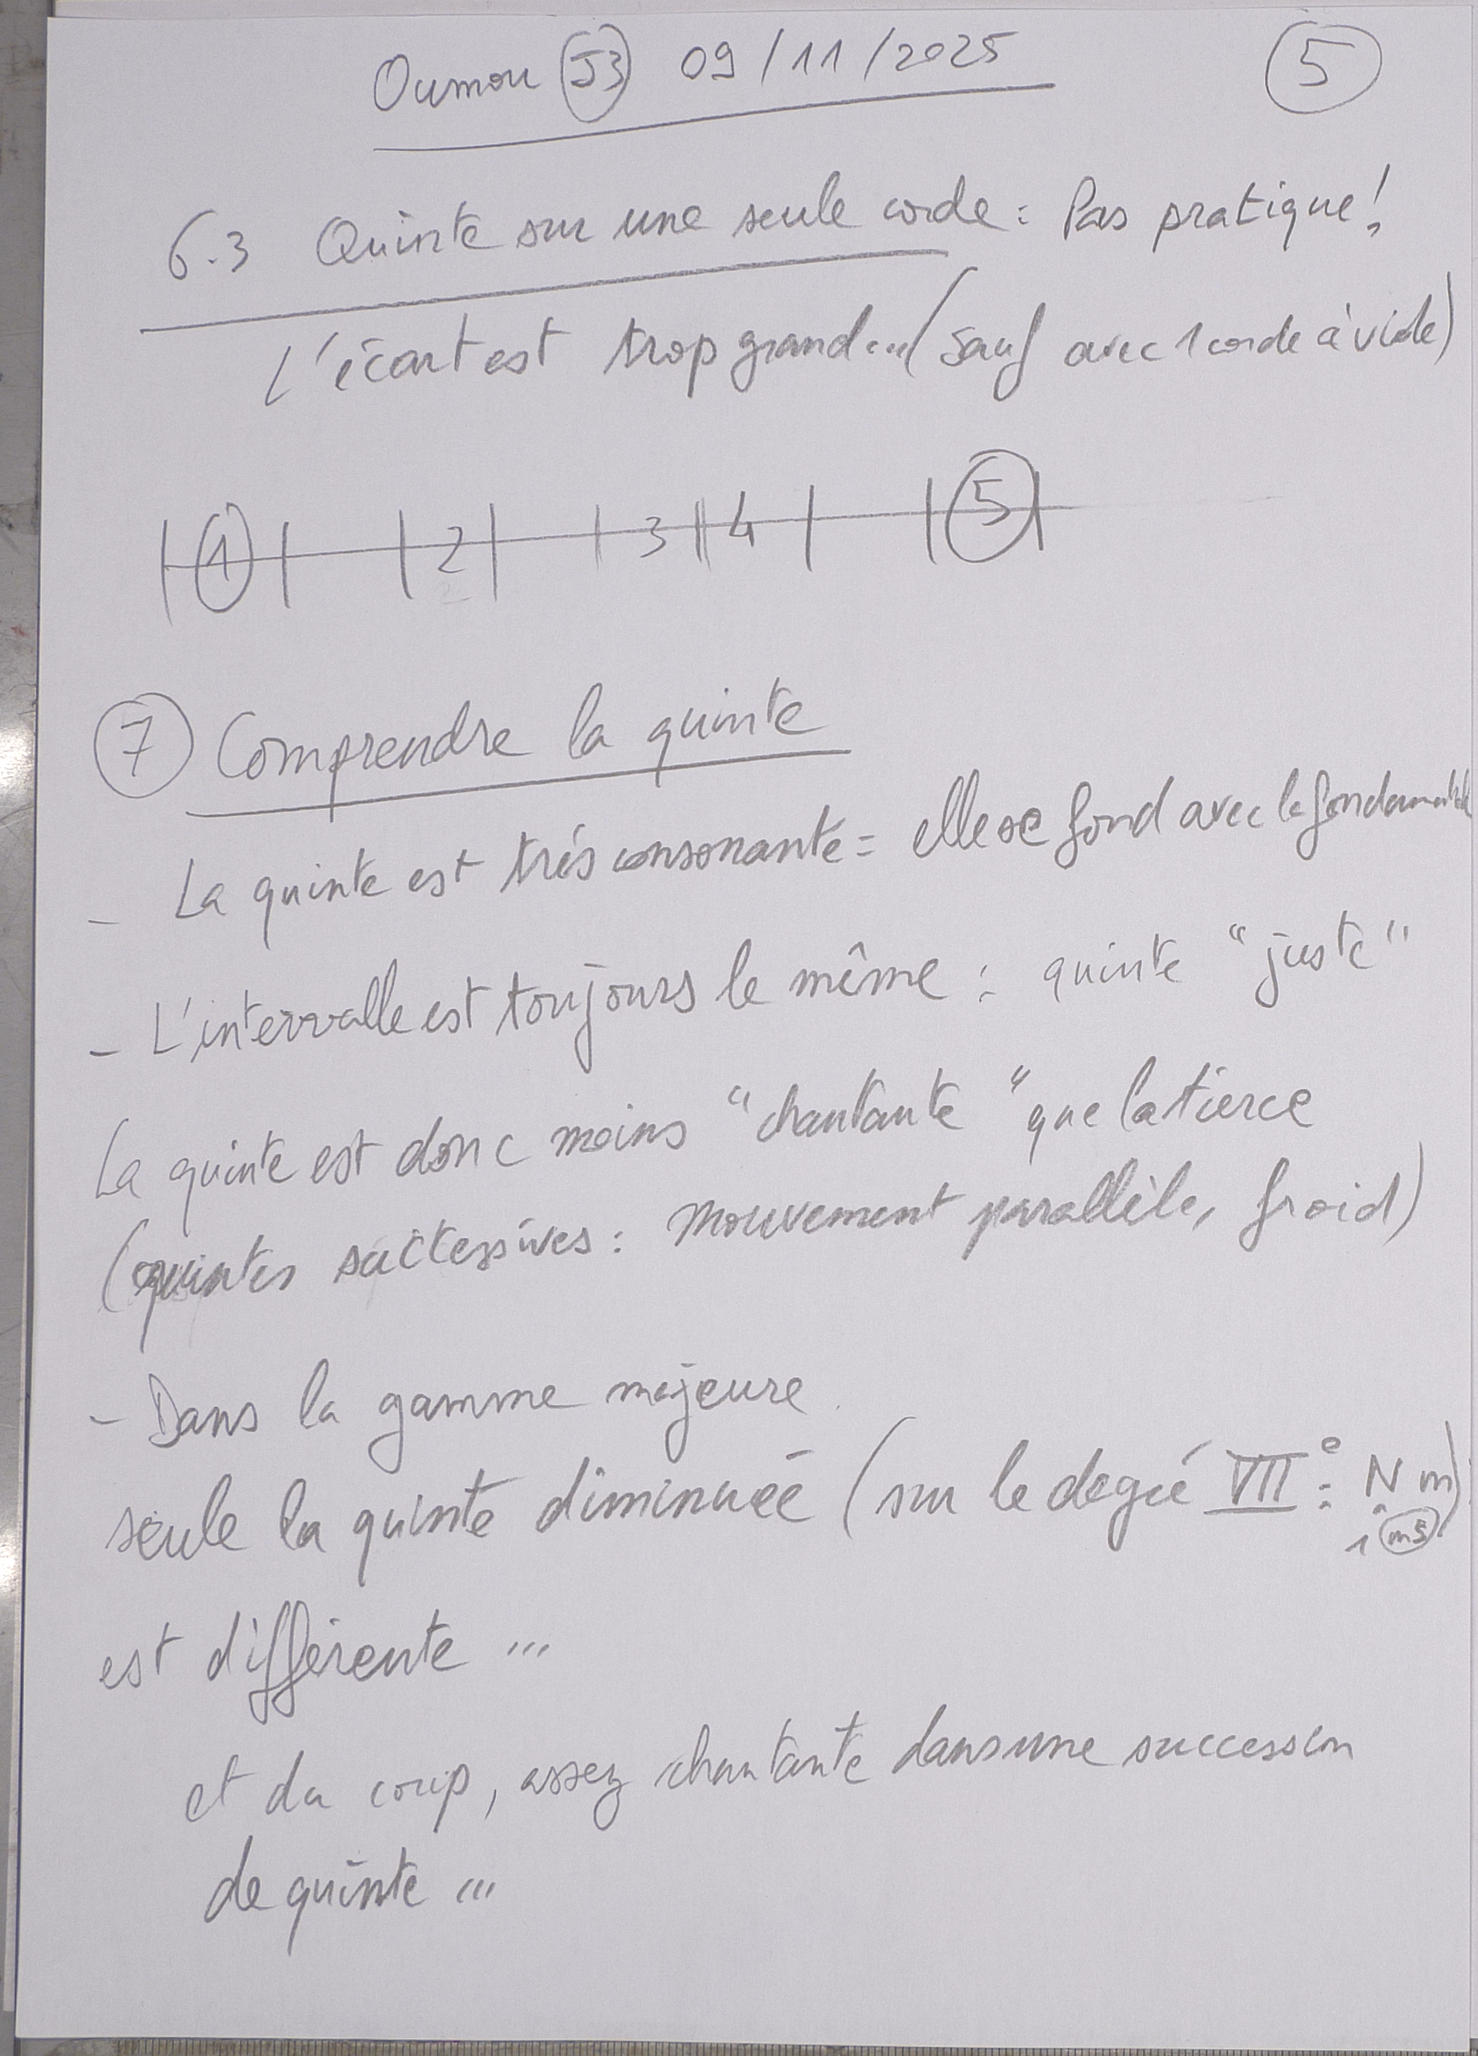 Oumou 53 09/11/2025 5
6.3 Quinte sur une seule corde : Pas pratique !
L'écart est trop grand... (sauf avec 1 corde à vide)
| 1 | | 2 | | 3 || 4 | | 5 |
7 Comprendre la quinte
- La quinte est très consonante = elle se fond avec la fondamentale
- L'intervalle est toujours le même : quinte "juste"
La quinte est donc moins "chantante" que la tierce
(quintes successives : Mouvement parallèle, froid)
- Dans la gamme majeure
seule la quinte diminuée (sur le degré VII° : N m)
1 m5
est différente ...
et du coup, assez chantante dans une succession
de quinte ...